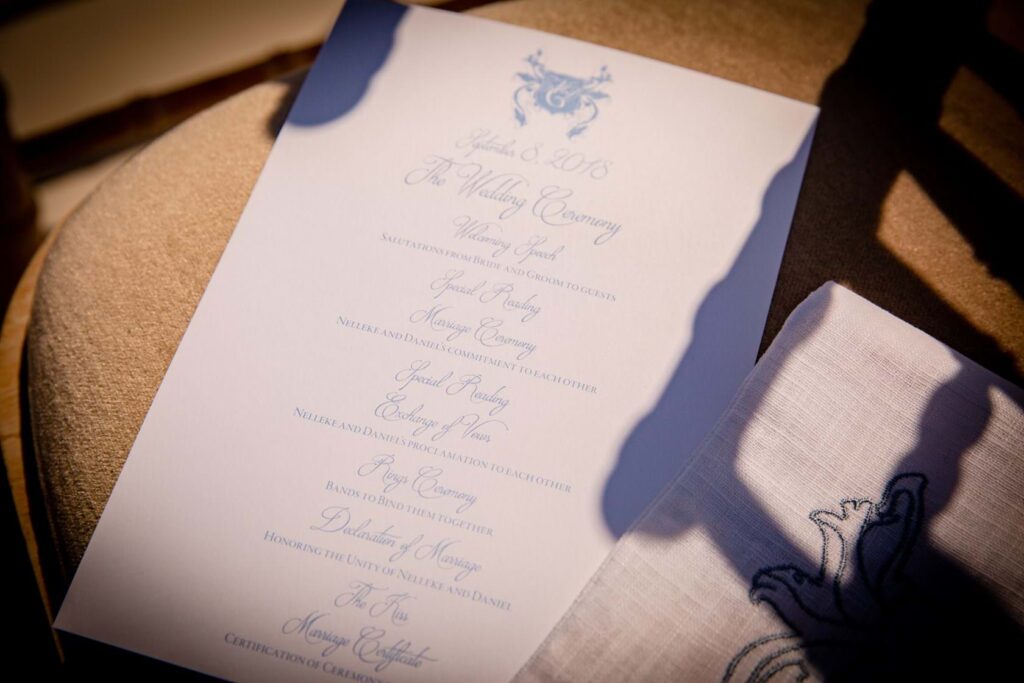 September 8, 2018
The Wedding Ceremony
Welcoming Speech
Salutations from Bride and Groom to guests
Special Reading
Marriage Ceremony
Nelleke and Daniel's commitment to each other
Special Reading
Exchange of Vows
Nelleke and Daniel's proclamation to each other
Rings Ceremony
Bands to Bind them together
Declaration of Marriage
Honoring the Unity of Nelleke and Daniel
The Kiss
Marriage Certificate
Certification of